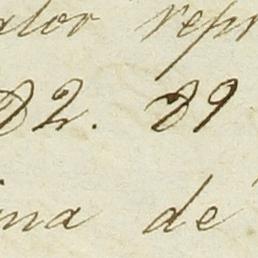 alor repr
82. 89
ina de